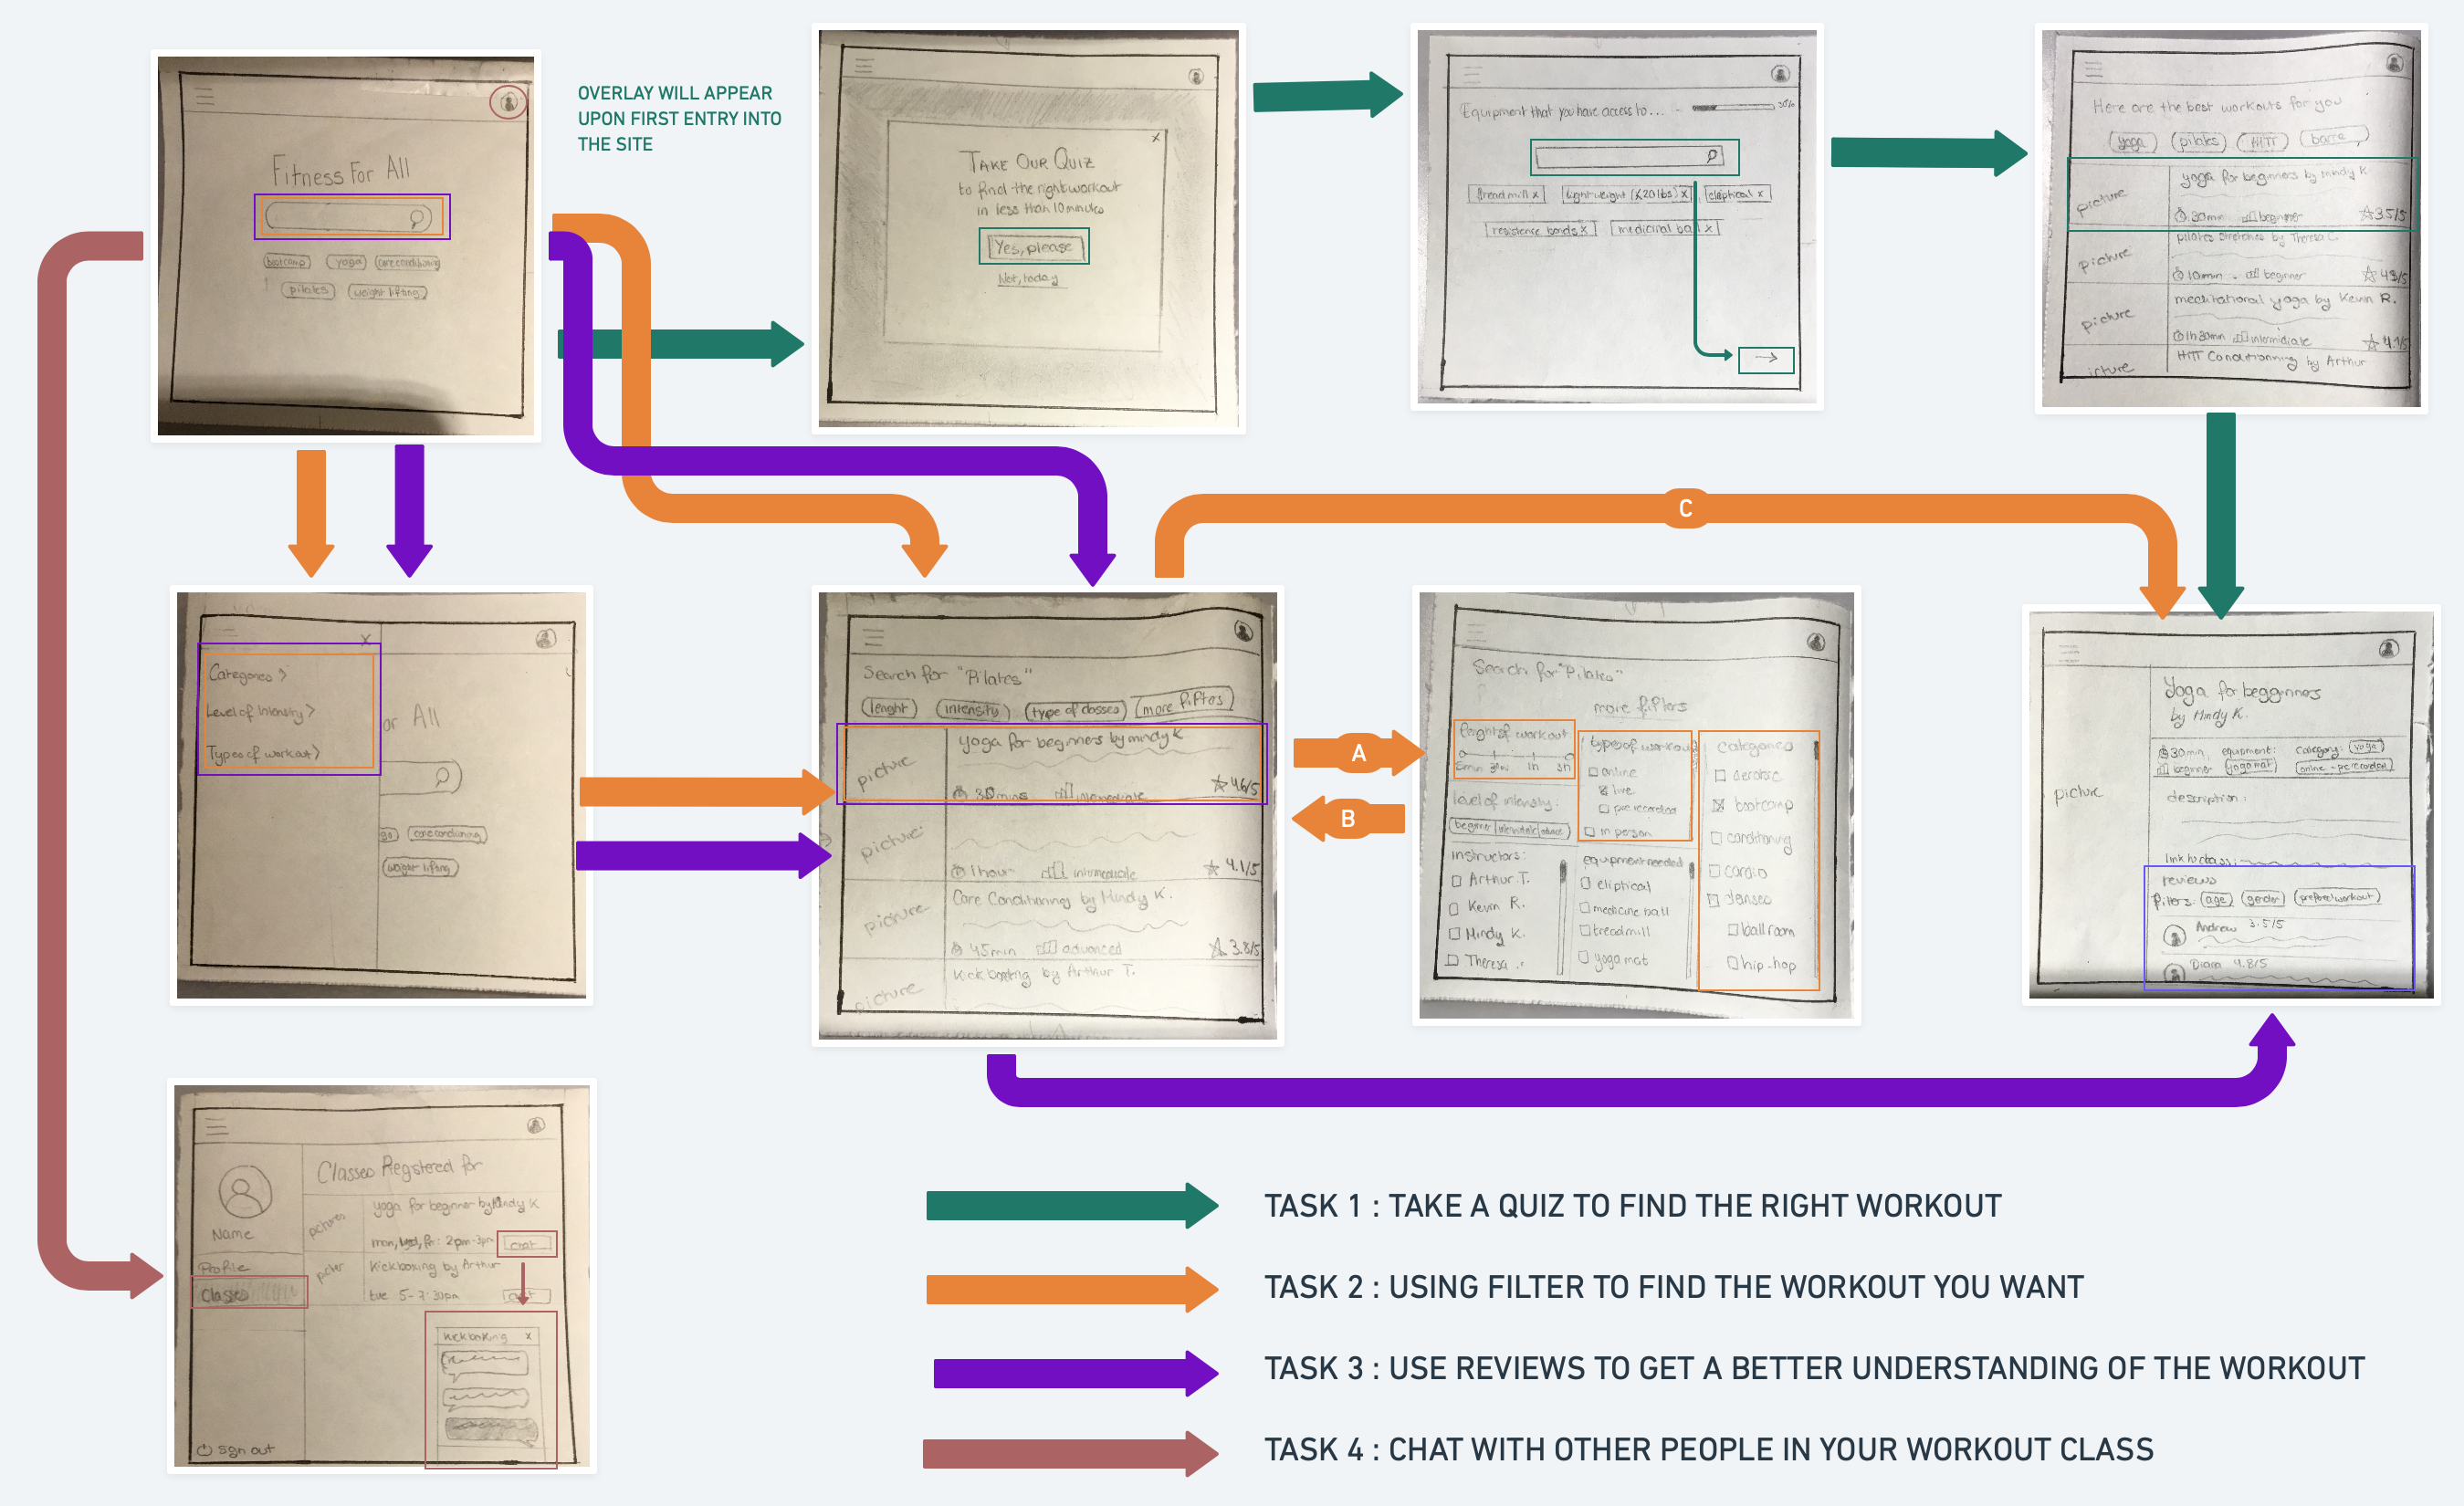 Fitness For All
bootcamp yoga core conditioning
pilates weight lifting
OVERLAY WILL APPEAR
UPON FIRST ENTRY INTO
THE SITE
x
TAKE OUR QUIZ
to find the right workout
in less than 10 minutes
Yes, please
Not, today
Equipment that you have access to...
treadmill x light weight (<20 lbs) x eliptical x
resistence bands x medicinal ball x
Here are the best workouts for you
yoga pilates HIIT barre
picture
yoga for beginners by mindy K
30min beginner 3.5/5
picture
pilates by Theresa C.
10min beginner 4.9/5
picture
meditational yoga by Kevin R.
1h30min intermidiate 4.9/5
HIIT Conditionning by Arthur
C
x
Categories >
Level of Intensity >
Types of workout >
or All
go core conditioning
weight lifting
Search for "Pilates"
lenght intensity type of classes more filters
picture
yoga for beginners by mindy K
30mins intermediate 4.6/5
picture
1hour intermediate 4.1/5
picture
Core Conditioning by Mindy K.
45min advanced 3.8/5
picture
Kickboxing by Arthur T.
A
B
Search for "Pilates"
more filters
lenght of workout
5min 30m 1h 3h
level of intensity:
beginner intermidiate advance
instructors:
Arthur T.
Kevin R.
Mindy K.
Theresa
types of workout
online
live
pre recorded
in person
equipment needed
eliptical
medicine ball
treadmill
yoga mat
Categories
aerobic
bootcamp
conditioning
cardio
danses
ballroom
hip-hop
picture
Yoga for begginners
by Mindy K.
30min, equipment: category: yoga
beginner yoga mat online - pre recorded
description:
link to class:
reviews
filters: age gender prefered workout
Andrew 3.5/5
Diana 4.8/5
Name
Profile
Classes
sign out
Classes Registered for
pictures
yoga for beginner by Mindy K
mon, wed, fri: 2pm-3pm chat
picter
Kickboxing by Arthur
tue 5-7:30pm
Kickboxing x
TASK 1 : TAKE A QUIZ TO FIND THE RIGHT WORKOUT
TASK 2 : USING FILTER TO FIND THE WORKOUT YOU WANT
TASK 3 : USE REVIEWS TO GET A BETTER UNDERSTANDING OF THE WORKOUT
TASK 4 : CHAT WITH OTHER PEOPLE IN YOUR WORKOUT CLASS